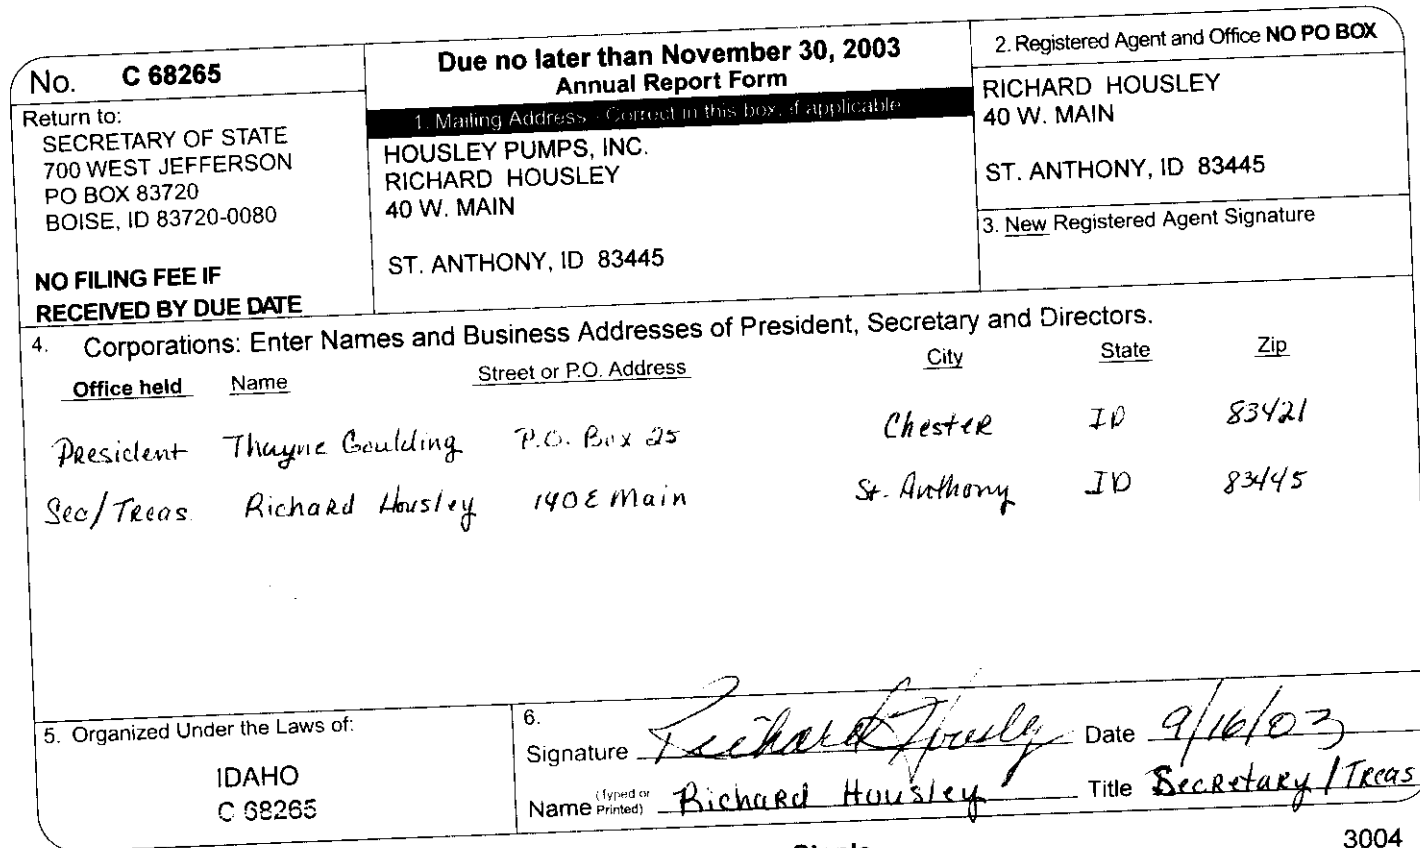 No. C 68265
Return to:
SECRETARY OF STATE
700 WEST JEFFERSON
PO BOX 83720
BOISE, ID 83720-0080
NO FILING FEE IF
RECEIVED BY DUE DATE
Due no later than November 30, 2003
Annual Report Form
1. Mailing Address - Correct in this box, if applicable
HOUSLEY PUMPS, INC.
RICHARD HOUSLEY
40 W. MAIN
ST. ANTHONY, ID 83445
2. Registered Agent and Office NO PO BOX
RICHARD HOUSLEY
40 W. MAIN
ST. ANTHONY, ID 83445
3. New Registered Agent Signature
4. Corporations: Enter Names and Business Addresses of President, Secretary and Directors.
Office held Name Street or P.O. Address City State Zip
President Thayne Goulding P.O. Box 25 Chester ID 83421
Sec/Treas. Richard Housley 140 E Main St. Anthony ID 83445
5. Organized Under the Laws of:
IDAHO
C 68265
6.
Signature Richard Housley Date 9/16/03
Name (Typed or Printed) Richard Housley Title Secretary / Treas
3004